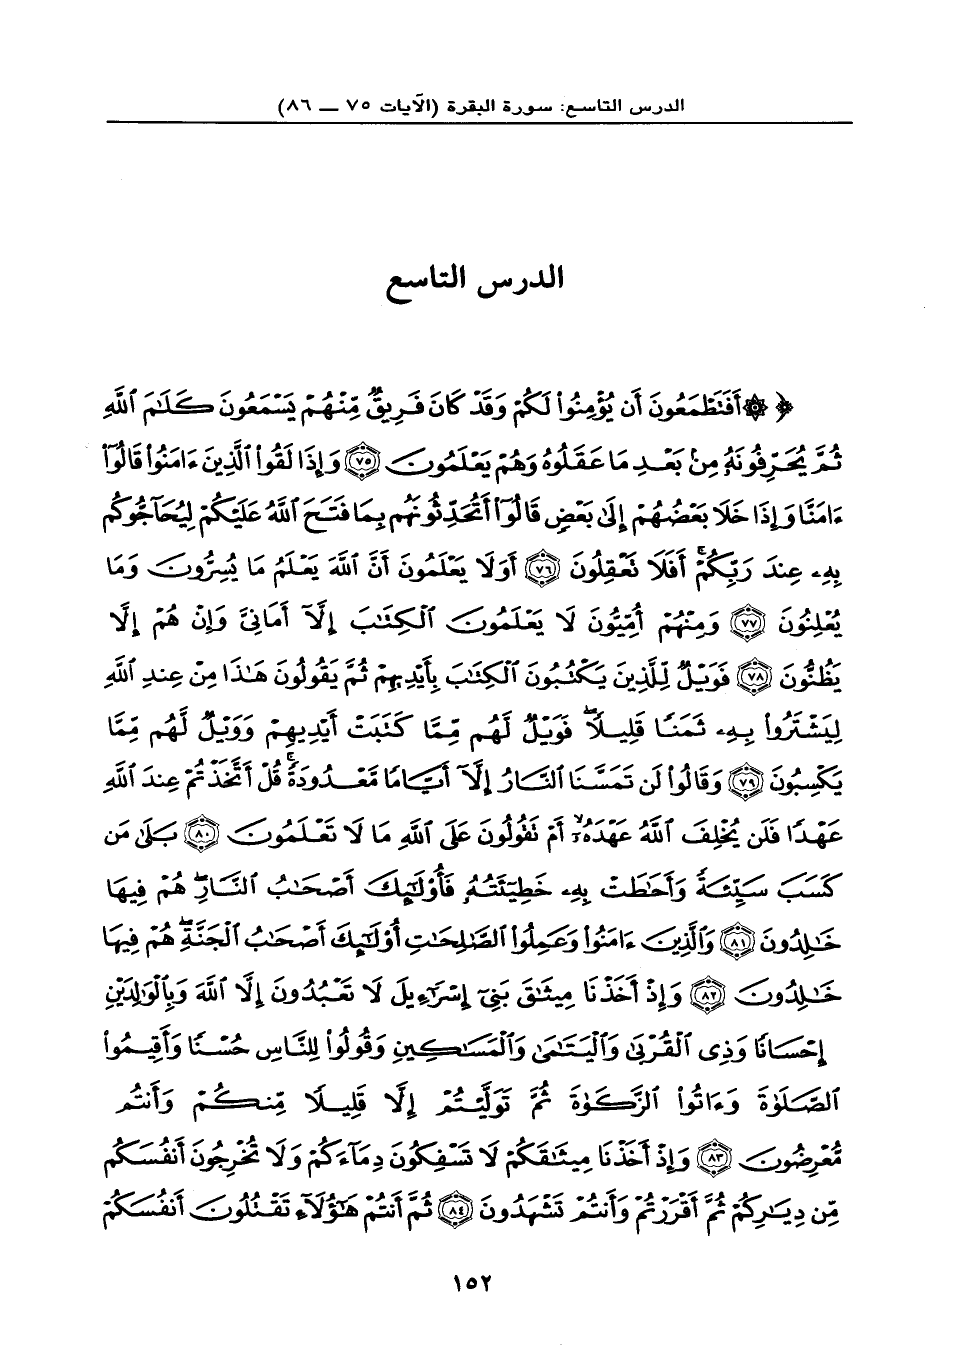 الدرس التاسع: سورة البقرة (الآيات ٧٥ — ٨٦)
الدرس التاسع
﴿ ۞ أَفَتَطْمَعُونَ أَن يُؤْمِنُوا۟ لَكُمْ وَقَدْ كَانَ فَرِيقٌ مِّنْهُمْ يَسْمَعُونَ كَلَـٰمَ ٱللَّهِ
ثُمَّ يُحَرِّفُونَهُۥ مِنۢ بَعْدِ مَا عَقَلُوهُ وَهُمْ يَعْلَمُونَ ٧٥ وَإِذَا لَقُوا۟ ٱلَّذِينَ ءَامَنُوا۟ قَالُوٓا۟
ءَامَنَّا وَإِذَا خَلَا بَعْضُهُمْ إِلَىٰ بَعْضٍ قَالُوٓا۟ أَتُحَدِّثُونَهُم بِمَا فَتَحَ ٱللَّهُ عَلَيْكُمْ لِيُحَآجُّوكُم
بِهِۦ عِندَ رَبِّكُمْ ۚ أَفَلَا تَعْقِلُونَ ٧٦ أَوَلَا يَعْلَمُونَ أَنَّ ٱللَّهَ يَعْلَمُ مَا يُسِرُّونَ وَمَا
يُعْلِنُونَ ٧٧ وَمِنْهُمْ أُمِّيُّونَ لَا يَعْلَمُونَ ٱلْكِتَـٰبَ إِلَّآ أَمَانِىَّ وَإِنْ هُمْ إِلَّا
يَظُنُّونَ ٧٨ فَوَيْلٌ لِّلَّذِينَ يَكْتُبُونَ ٱلْكِتَـٰبَ بِأَيْدِيهِمْ ثُمَّ يَقُولُونَ هَـٰذَا مِنْ عِندِ ٱللَّهِ
لِيَشْتَرُوا۟ بِهِۦ ثَمَنًا قَلِيلًا ۖ فَوَيْلٌ لَّهُم مِّمَّا كَتَبَتْ أَيْدِيهِمْ وَوَيْلٌ لَّهُم مِّمَّا
يَكْسِبُونَ ٧٩ وَقَالُوا۟ لَن تَمَسَّنَا ٱلنَّارُ إِلَّآ أَيَّامًا مَّعْدُودَةً ۚ قُلْ أَتَّخَذْتُمْ عِندَ ٱللَّهِ
عَهْدًا فَلَن يُخْلِفَ ٱللَّهُ عَهْدَهُۥٓ ۖ أَمْ تَقُولُونَ عَلَى ٱللَّهِ مَا لَا تَعْلَمُونَ ٨٠ بَلَىٰ مَن
كَسَبَ سَيِّئَةً وَأَحَـٰطَتْ بِهِۦ خَطِيٓـَٔتُهُۥ فَأُو۟لَـٰٓئِكَ أَصْحَـٰبُ ٱلنَّارِ ۖ هُمْ فِيهَا
خَـٰلِدُونَ ٨١ وَٱلَّذِينَ ءَامَنُوا۟ وَعَمِلُوا۟ ٱلصَّـٰلِحَـٰتِ أُو۟لَـٰٓئِكَ أَصْحَـٰبُ ٱلْجَنَّةِ ۖ هُمْ فِيهَا
خَـٰلِدُونَ ٨٢ وَإِذْ أَخَذْنَا مِيثَـٰقَ بَنِىٓ إِسْرَٰٓءِيلَ لَا تَعْبُدُونَ إِلَّا ٱللَّهَ وَبِٱلْوَٰلِدَيْنِ
إِحْسَانًا وَذِى ٱلْقُرْبَىٰ وَٱلْيَتَـٰمَىٰ وَٱلْمَسَـٰكِينِ وَقُولُوا۟ لِلنَّاسِ حُسْنًا وَأَقِيمُوا۟
ٱلصَّلَوٰةَ وَءَاتُوا۟ ٱلزَّكَوٰةَ ثُمَّ تَوَلَّيْتُمْ إِلَّا قَلِيلًا مِّنكُمْ وَأَنتُم
مُّعْرِضُونَ ٨٣ وَإِذْ أَخَذْنَا مِيثَـٰقَكُمْ لَا تَسْفِكُونَ دِمَآءَكُمْ وَلَا تُخْرِجُونَ أَنفُسَكُم
مِّن دِيَـٰرِكُمْ ثُمَّ أَقْرَرْتُمْ وَأَنتُمْ تَشْهَدُونَ ٨٤ ثُمَّ أَنتُمْ هَـٰٓؤُلَآءِ تَقْتُلُونَ أَنفُسَكُمْ
١٥٢